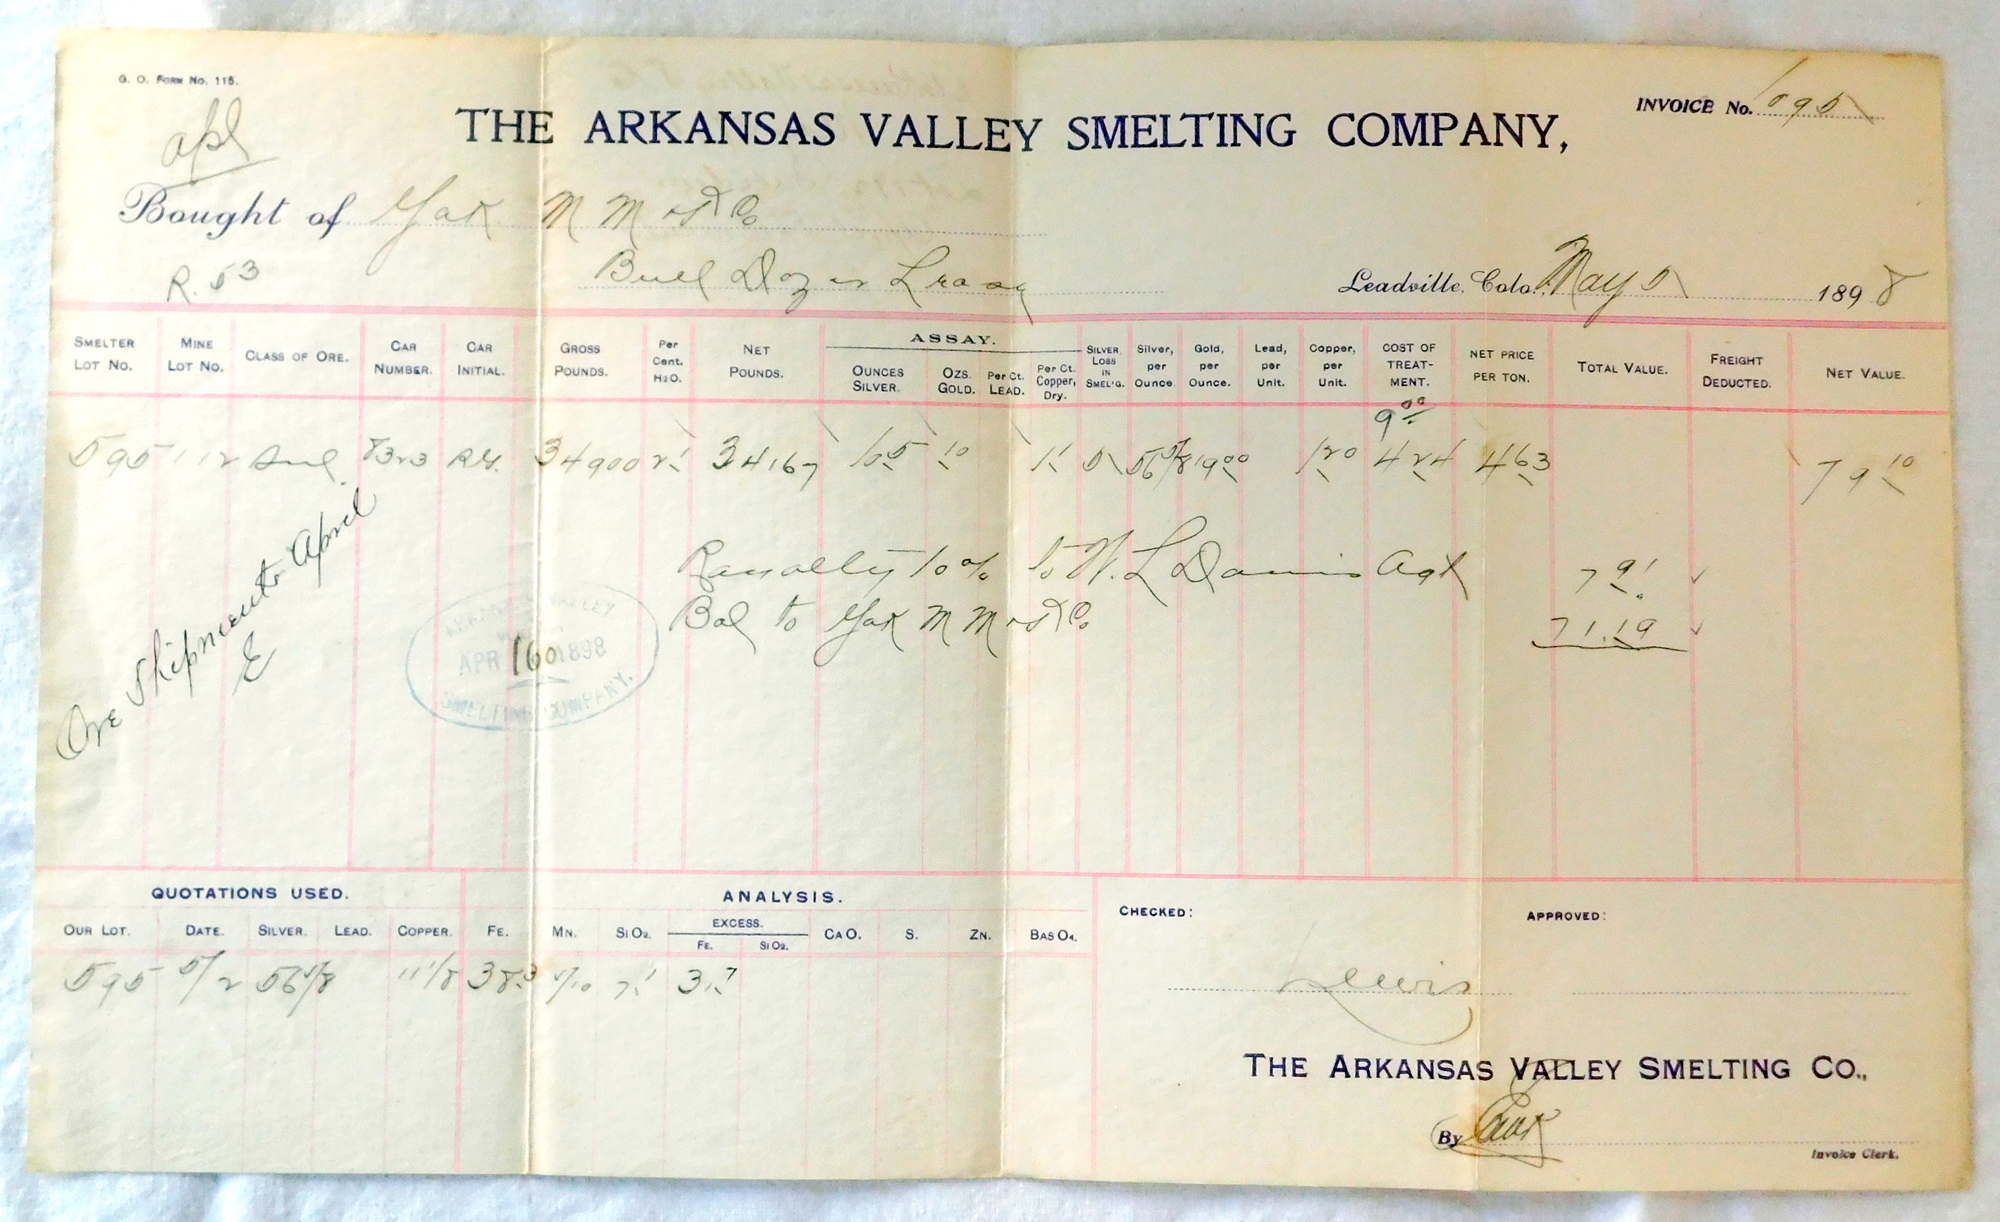 G. O. Form No. 115.
apl
INVOICE No. 1095
THE ARKANSAS VALLEY SMELTING COMPANY,
Bought of Yak M M & T Co
R. 53
Bull Dozer
Leadville, Colo. May 5 1898
SMELTER LOT No. MINE LOT No. CLASS OF ORE. CAR NUMBER. CAR INITIAL. GROSS POUNDS. Per Cent. H2O. NET POUNDS. ASSAY. OUNCES SILVER. OZS. GOLD. Per Ct. LEAD. Per Ct. Copper, Dry. SILVER LOSS IN SMEL'G. Silver, per Ounce Gold, per Ounce. Lead, per Unit. Copper, per Unit. COST OF TREAT-MENT. NET PRICE PER TON. TOTAL VALUE. FREIGHT DEDUCTED. NET VALUE.
9 00
595 112 Sul 8323 R.G. 34900 2 1 34167 10 5 10 1 1 5 56 5/8 19 00 1 20 4 24 4 63 79 10
Royalty 10% to W. L Davis Agt 7 91
Bal to Yak M M & T Co. 71.19
Ore Shipments April
E
ARKANSAS VALLEY
APR 1898
160
SMELTING COMPANY.
QUOTATIONS USED. ANALYSIS.
OUR LOT. DATE. SILVER. LEAD. COPPER. FE. MN. SiO2. EXCESS. FE. SiO2. CAO. S. ZN. BASO4.
595 5/2 56 5/8 11 1/8 38.3 7 1
CHECKED: APPROVED:
Lewis
THE ARKANSAS VALLEY SMELTING CO.,
By
Invoice Clerk.